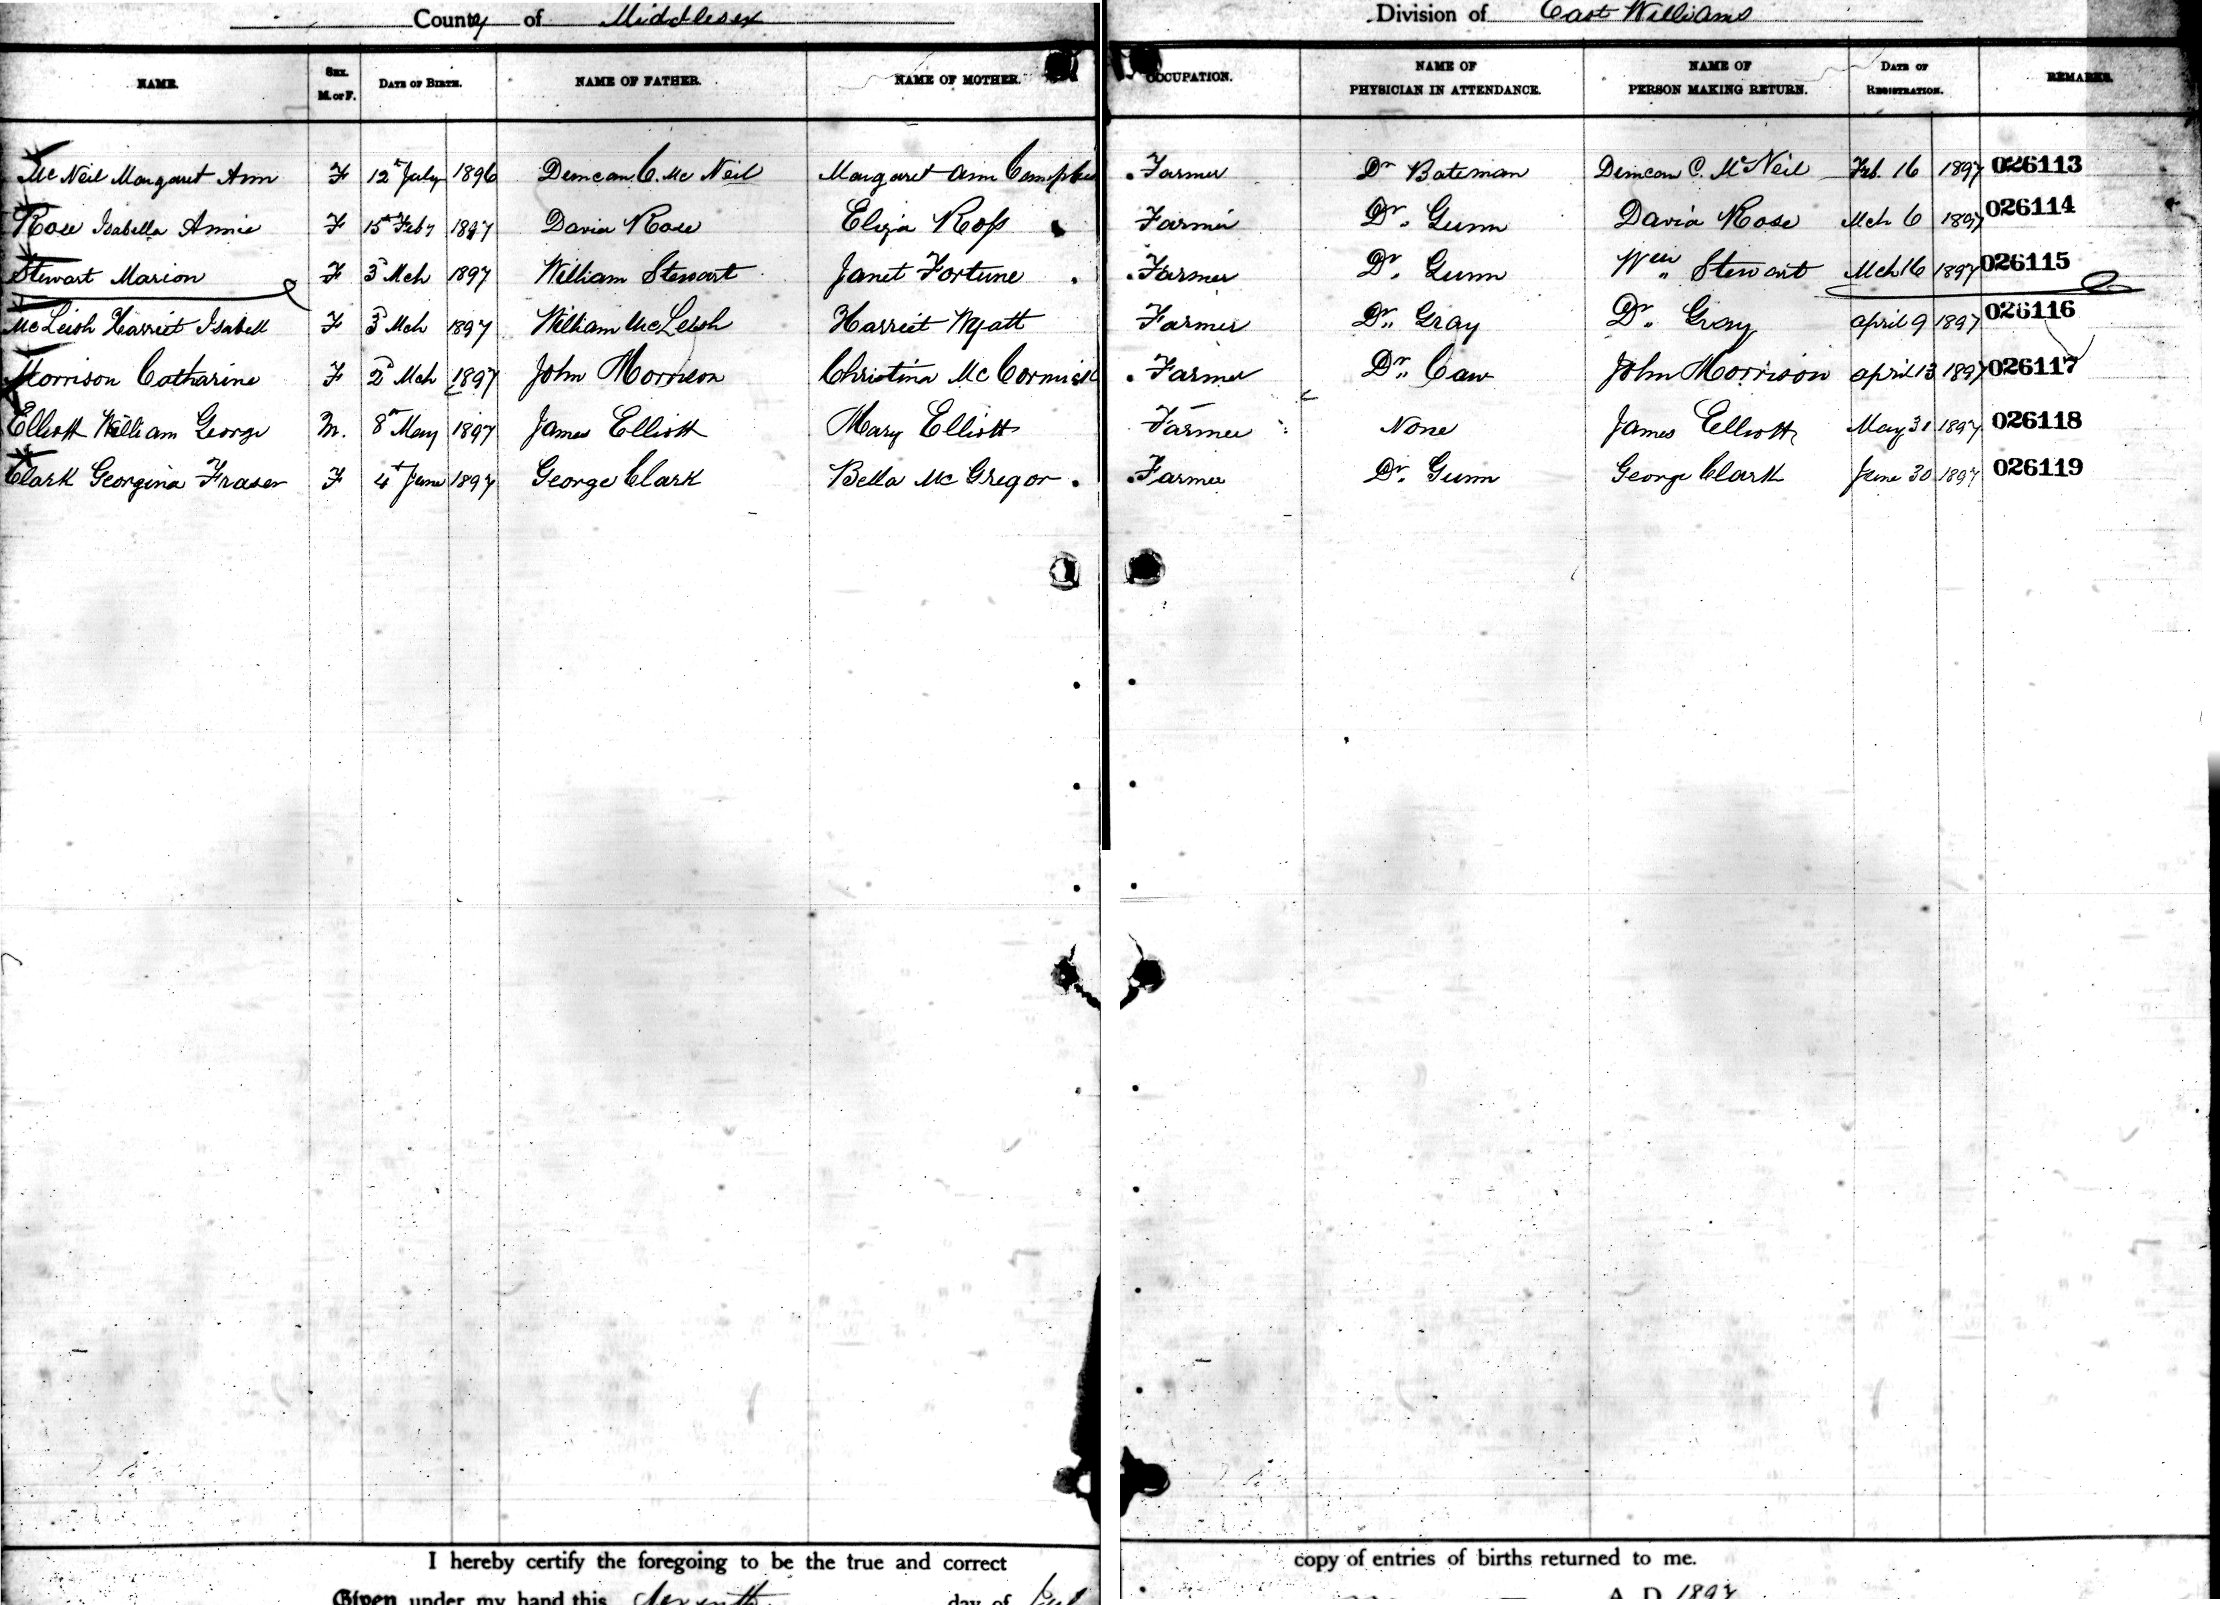 County of Middlesex Division of East Williams
NAME. SEX. M. or F. DATE OF BIRTH. NAME OF FATHER. NAME OF MOTHER. OCCUPATION. NAME OF PHYSICIAN IN ATTENDANCE. NAME OF PERSON MAKING RETURN. DATE OF REGISTRATION. REMARKS.
McNeil Margaret Ann F 12th July 1896 Duncan C. McNeil Margaret Ann Campbell Farmer Dr Bateman Duncan C. McNeil Feb. 16 1897 026113
Rose Isabella Annie F 15th Feby 1897 David Rose Eliza Ross Farmer Dr. Gunn David Rose Mch 6 1897 026114
Stewart Marion F 3d Mch 1897 William Stewart Janet Fortune Farmer Dr. Gunn Wm Stewart Mch 16 1897 026115
McLeish Harriet Isabell F 3d Mch 1897 William McLeish Harriet Wyatt Farmer Dr. Gray Dr. Gray april 9 1897 026116
Morrison Catharine F 2d Mch 1897 John Morrison Christina McCormick Farmer Dr. Caw John Morrison april 13 1897 026117
Elliott William George M. 8th May 1897 James Elliott Mary Elliott Farmer None James Elliott May 31 1897 026118
Clark Georgina Fraser F 4th June 1897 George Clark Bella McGregor Farmer Dr. Gunn George Clark June 30 1897 026119
I hereby certify the foregoing to be the true and correct copy of entries of births returned to me.
Given under my hand this day of A. D. 1897